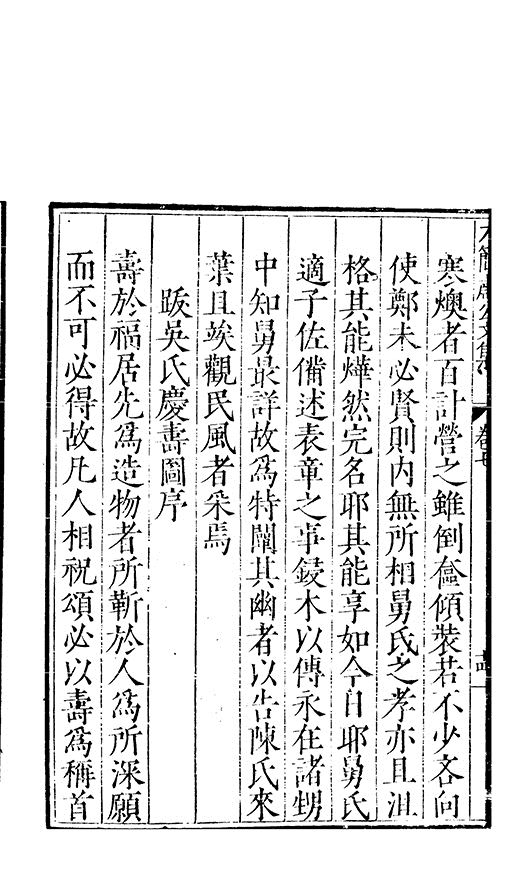 寒燠者百計營之雖倒奩傾裝若不少吝向
使鄭未必賢則內無所相舅氏之孝亦且沮
格其能燁然完名耶其能享如今日耶舅氏
適子佐僃述表章之事鋟木以傳永在諸甥
中知舅最詳故爲特闡其幽者以告陳氏來
葉且竢觀民風者采焉
跋吳氏慶壽圖序
壽於福居先爲造物者所靳於人爲所深願
而不可必得故凡人相祝頌必以壽爲稱首